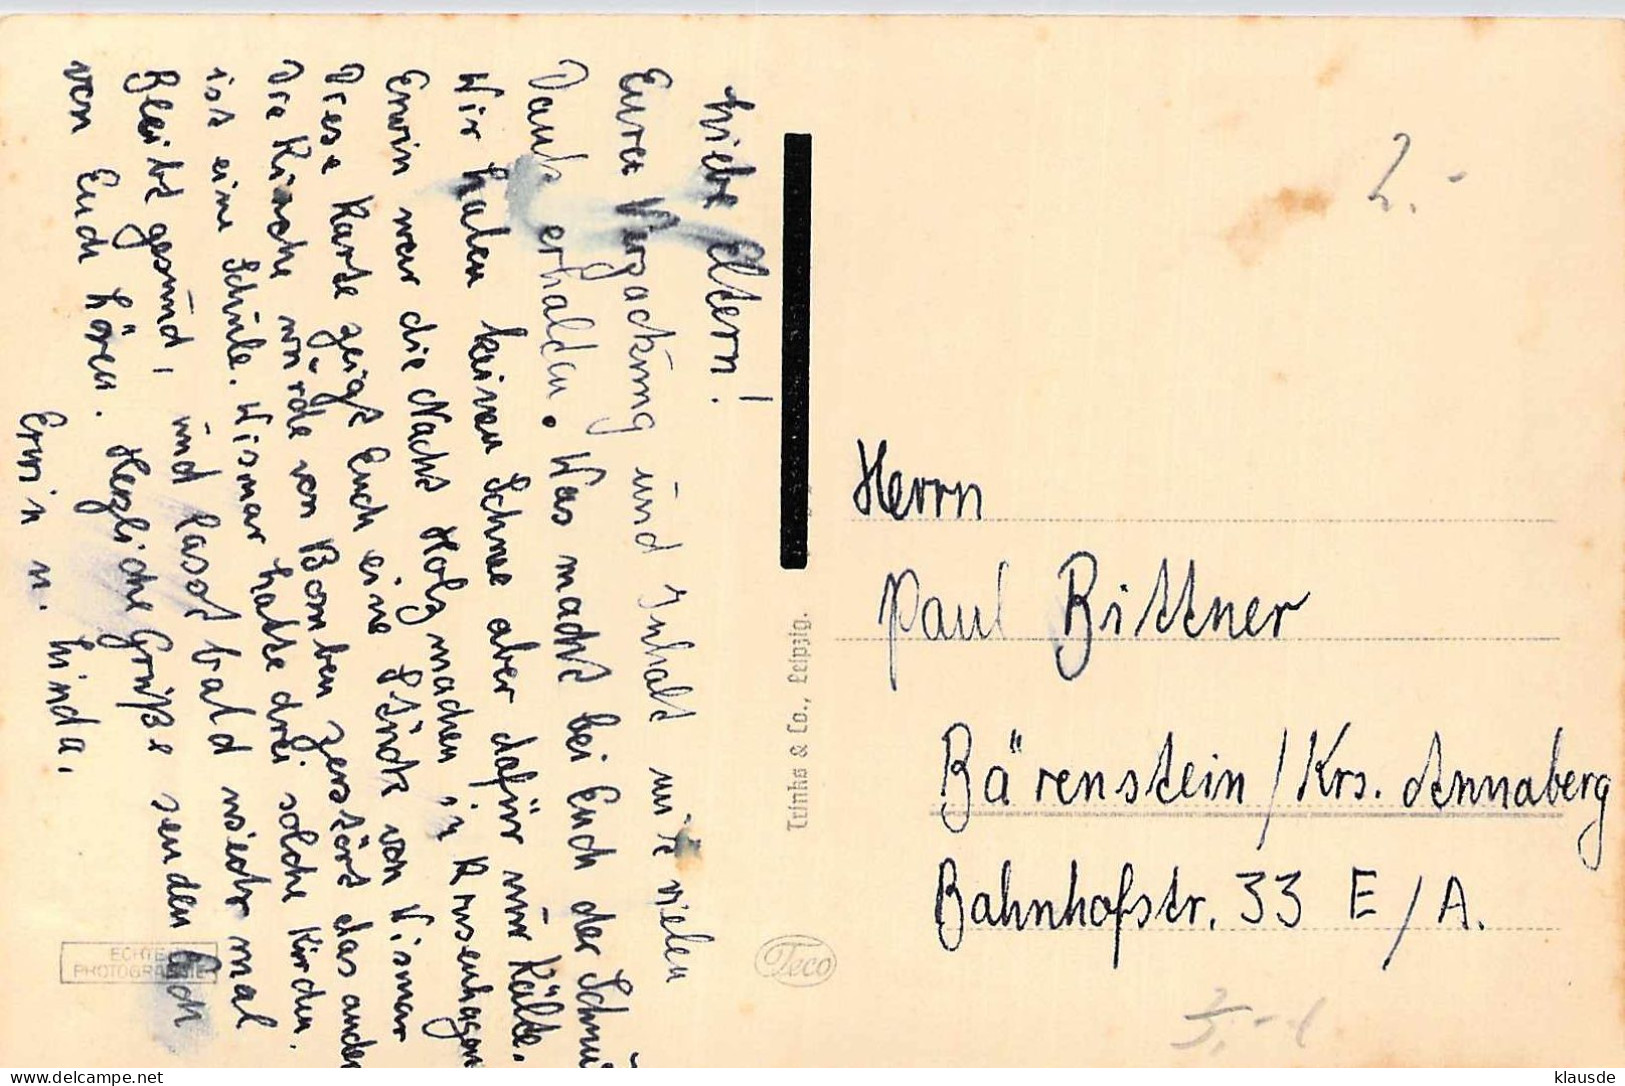 Liebe Eltern!
Eure Verpackung und Inhalt mit vielen
Dank erhalten. Was macht bei Euch der Schnee
Wir haben keinen Schnee aber dafür nur Kälte.
Erwin war die Nacht Holz machen in Rüsenhagen
Diese Karte zeigt Euch eine Stück von Wismar
Die Kirche würde von Bomben zerstört das ander
ist eine Schule. Wismar hatte drei solche Kirchen.
Bleibt gesund, und lasst bald wieder mal
von Euch hören. Herzliche Grüße senden Euch
Erwin u. Linda.
Trinks & Co., Leipzig.
ECHTE
PHOTOGRAPHIE
Teco
2.-
Herrn
Paul Bittner
Bärenstein / Krs. Annaberg
Bahnhofstr. 33 E/A.
klausde
the world's largest collectors website